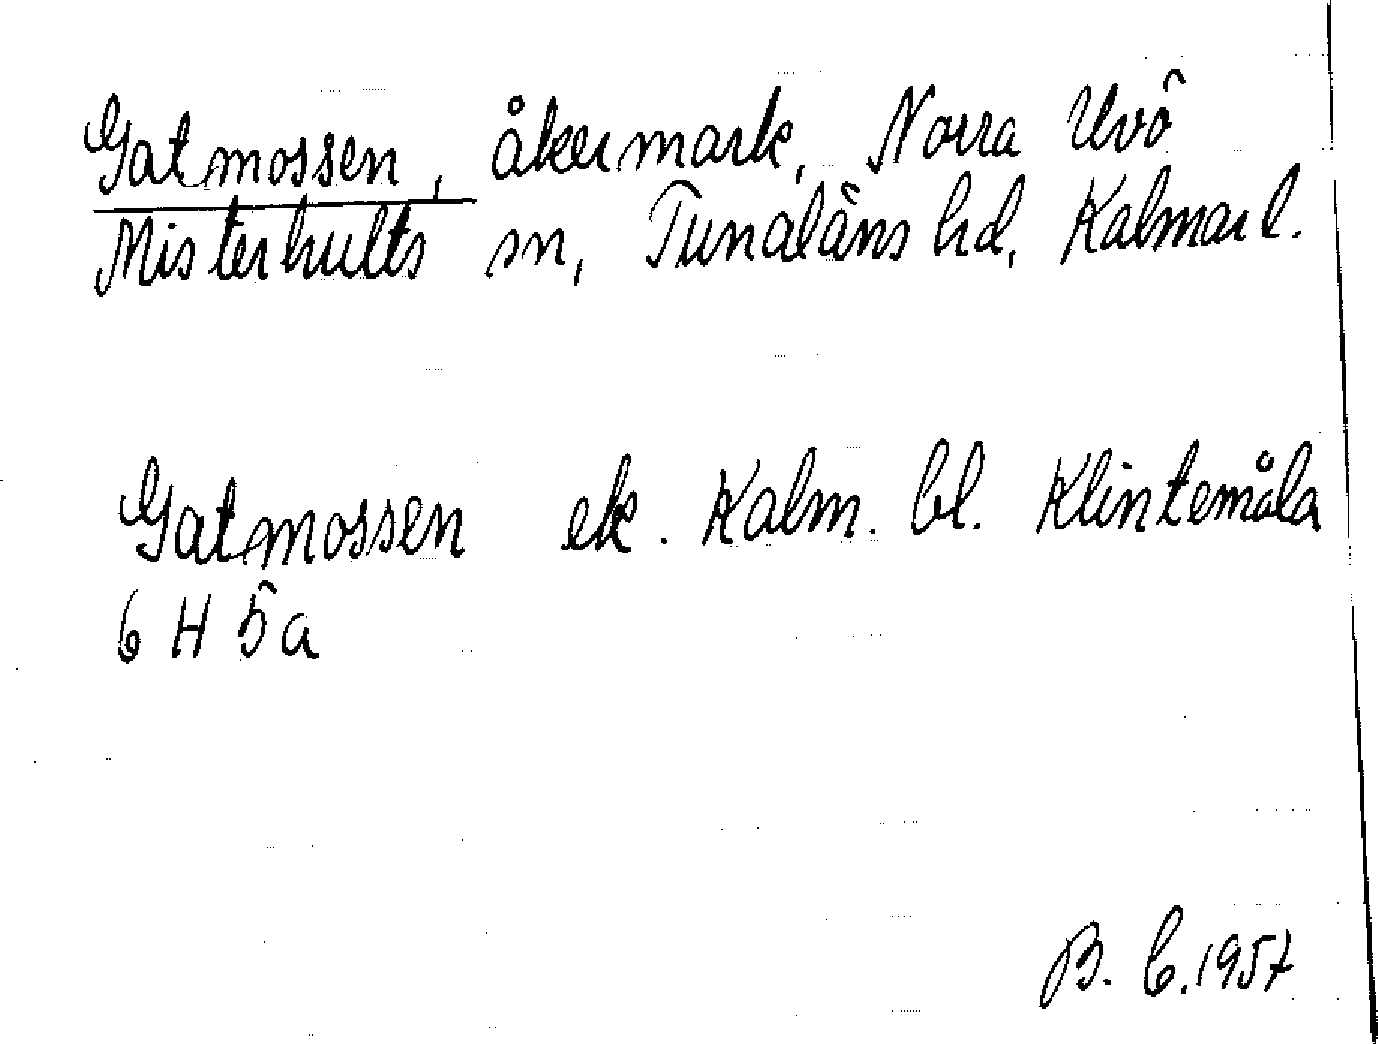 Gatmossen, åkermark, Norra Uvö
Misterhults sn, Tunaläns hd, Kalmar l.
Gatmossen ek. Kalm. bl. Klintemåla
6 H 5a
B. C. 1957